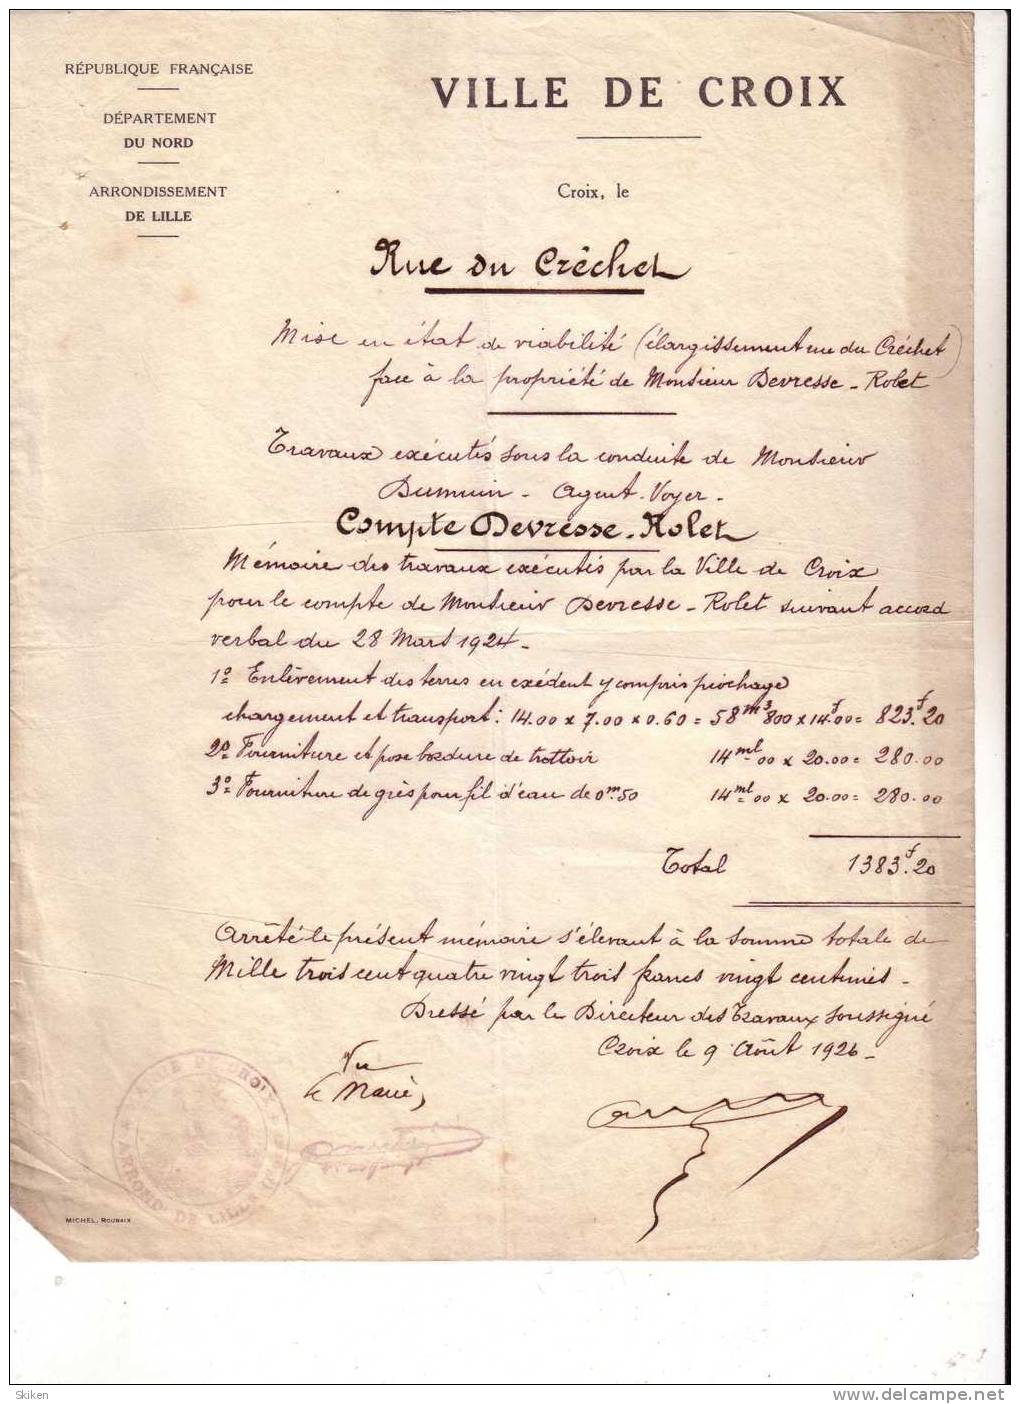 RÉPUBLIQUE FRANÇAISE
DÉPARTEMENT
DU NORD
ARRONDISSEMENT
DE LILLE
VILLE DE CROIX
Croix, le
Rue du Crêchet
Mise en état de viabilité (élargissement rue du Créchet)
face à la propriété de Monsieur Devresse - Rolet
Travaux exécutés sous la conduite de Monsieur
Agent-Voyer -
Compte Devresse - Rolet
Mémoire des travaux exécutés par la Ville de Croix
pour le compte de Monsieur Devresse - Rolet suivant accord
verbal du 28 Mars 1924 -
1º Enlèvement des terres en exédent y compris piochage
chargement et transport : 14.00 x 7.00 x 0.60 = 58m3800 x 14f.00 = 823f.20
2º Fourniture et pose bordure de trottoir 14ml00 x 20.00 = 280.00
3º Fourniture de grès pour fil d'eau de 0m50 14ml00 x 20.00 = 280.00
Total 1383f.20
Arrêté le présent mémoire s'élevant à la somme totale de
Mille trois cent quatre vingt trois francs vingt centimes -
Dressé par le Directeur des Travaux soussigné
Croix le 9 Août 1926 -
Vu
le Maire,
ARROND. DE LILLE
MICHEL, ROUBAIX
Skiken
www.delcampe.net